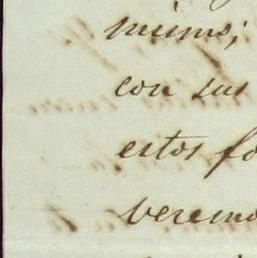 mismo;
con sus
estos fo
veremo